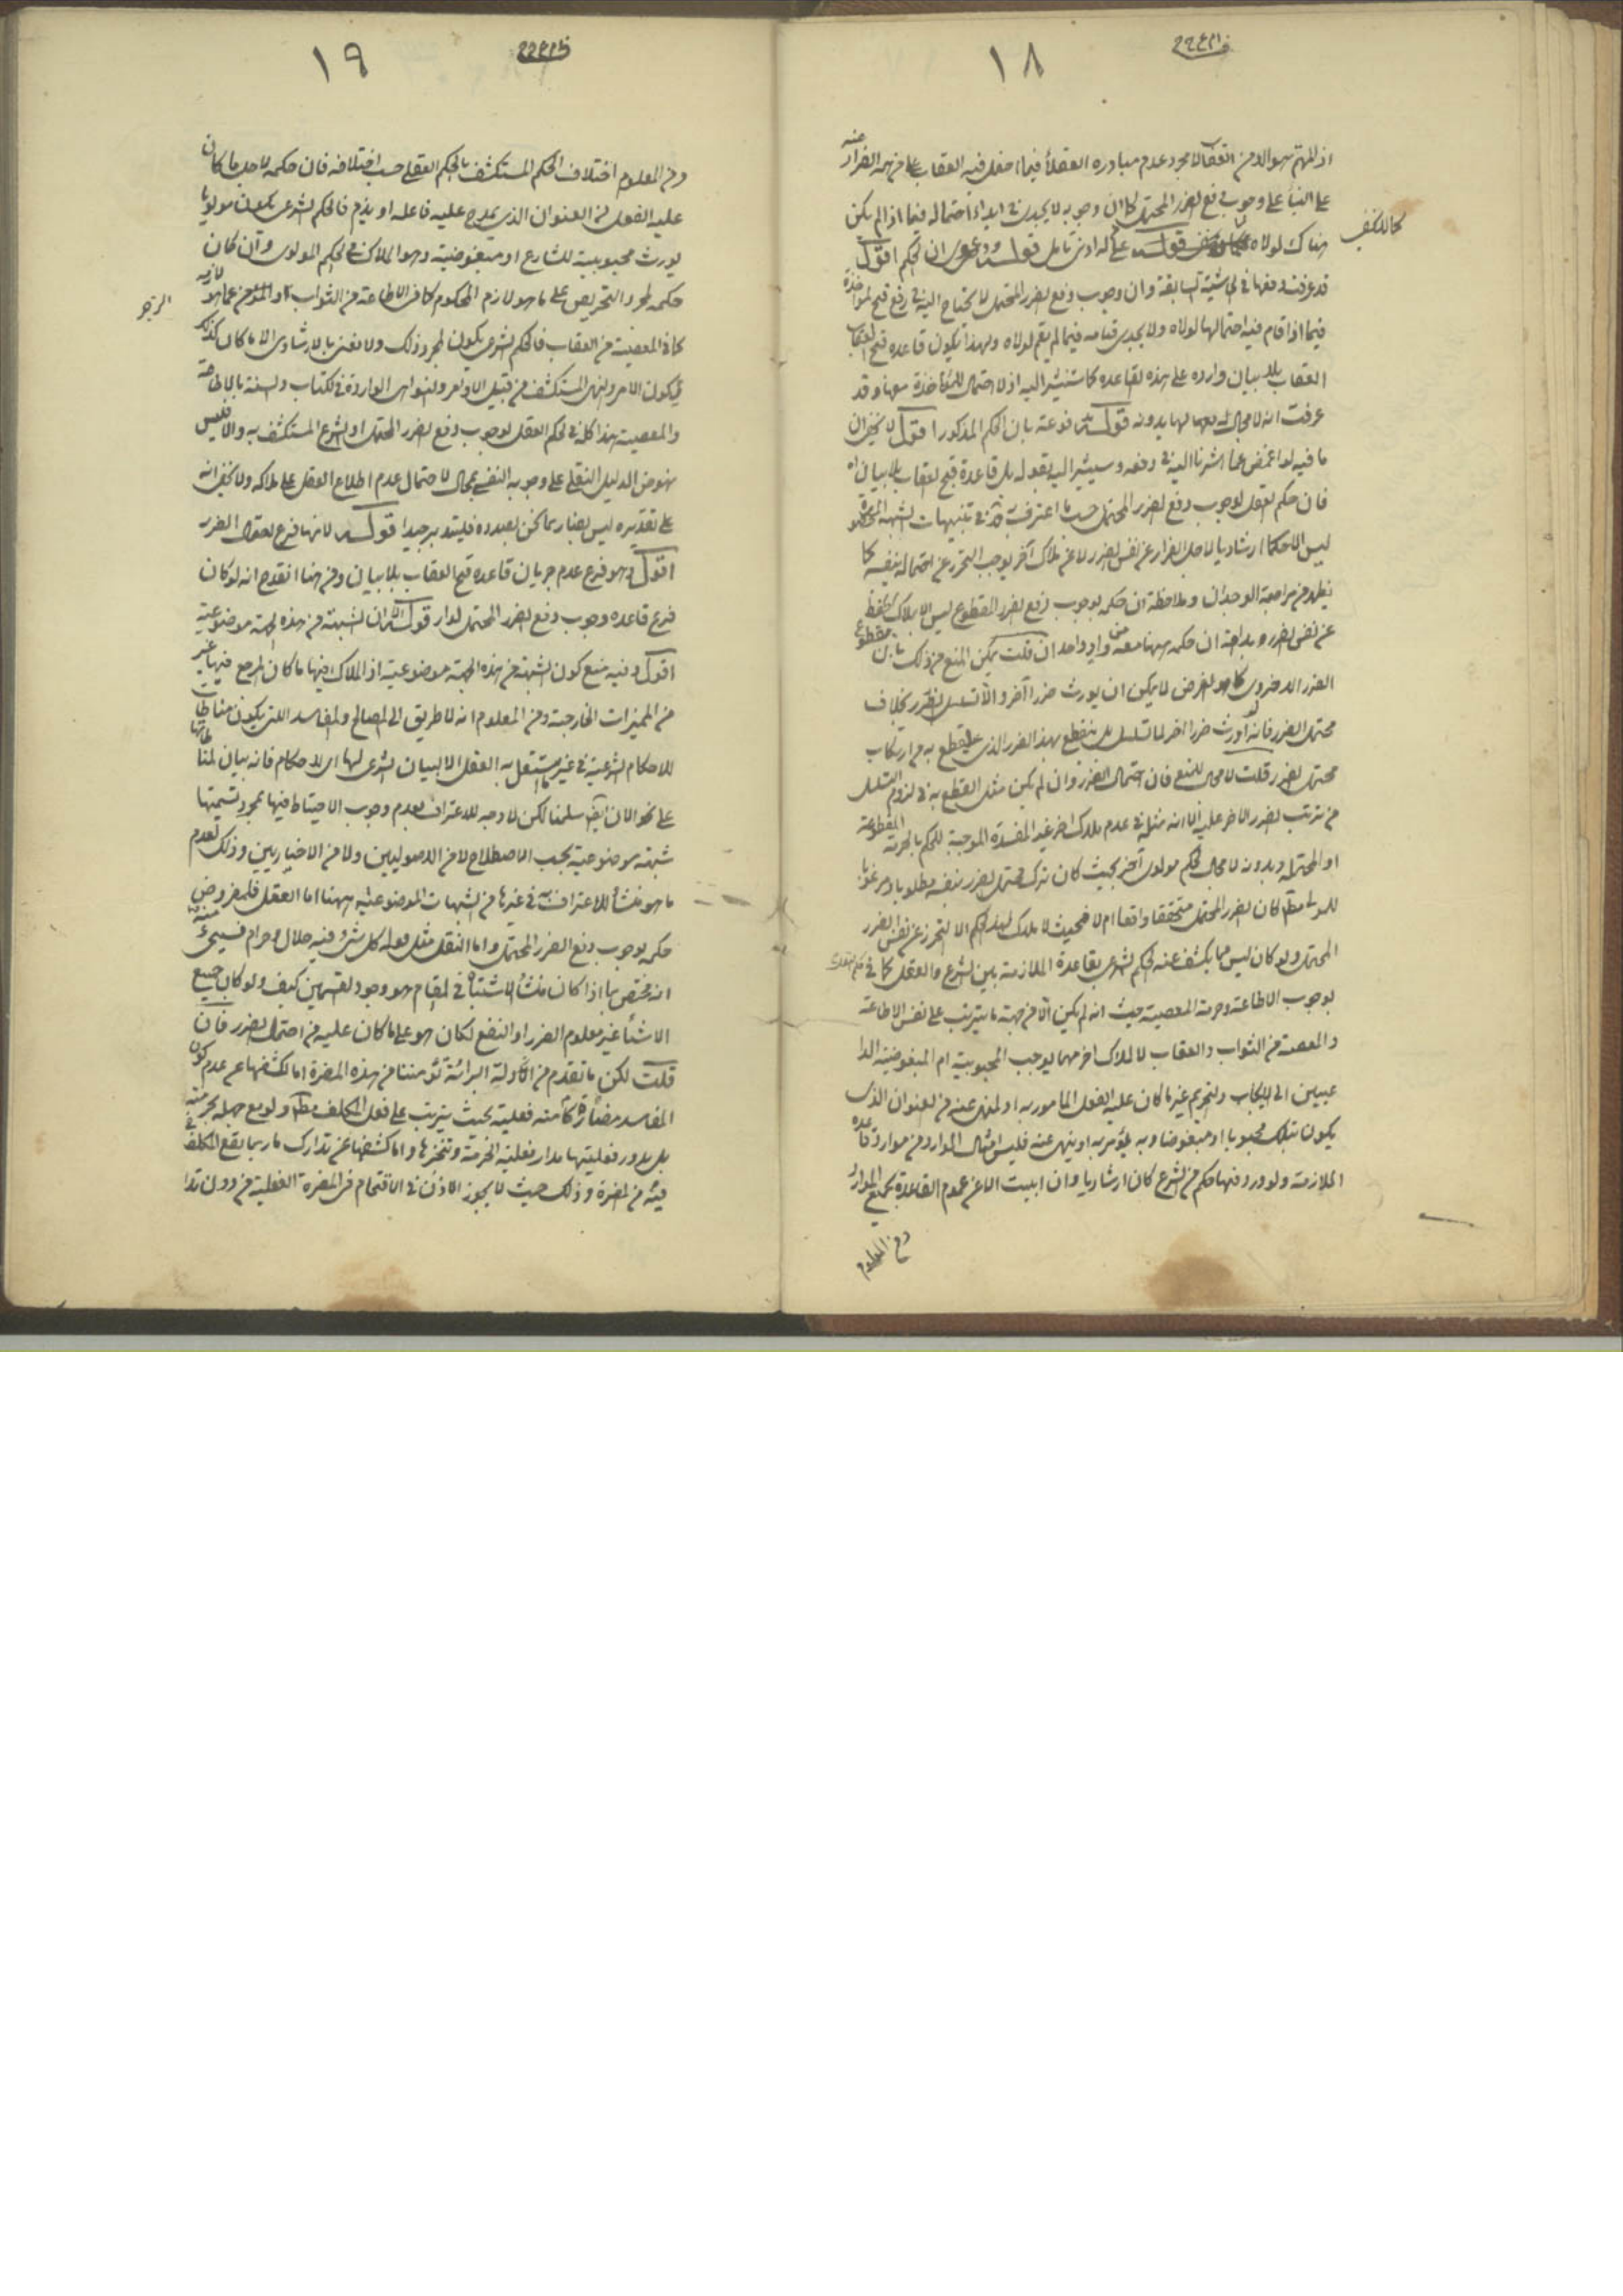 ١٨
اذ المهم هو الامن من العقاب لا مجرد عدم مبادرة العقلاء فيما احتمل فيه العقاب على من همه الفرار عنه
على البناء على وجوب دفع الضرر المحتمل كما ان وجوبه لا يجدى فى ابداء احتماله فيما اذا لم يكن
هناك لولاه كما لا يخفى قوله على له ادنى تامل قوله ودعوى ان الحكم اقول
قد عرفت دفعها فى الحاشية السابقة وان وجوب دفع الضرر المحتمل لا يحتاج اليه فى رفع قبح المؤاخذة
فيما اذا قام فيه احتمالها لولاه ولا يجدى قيامه فيما لم يقم لولاه وبهذا يكون قاعدة قبح العقاب
العقاب بلا بيان واردة على هذه القاعدة كما سنشير اليه اذ لا احتمال للمؤاخذة معها وقد
عرفت انه لا مجال لها بدونه قوله مدفوعة بان الحكم المذكور اقول لا يخفى ان
ما فيه لو اغمض عما اشرنا اليه فى دفعه وسيشير اليه بقوله بل قاعدة قبح العقاب بلا بيان اه
فان حكم العقل بوجوب دفع الضرر المحتمل حسب ما اعترف به فى تنبيهات الشبهة المحصورة
ليس الا حكما ارشاديا لاجل الفرار عن نفس الضرر لا عن ملاك آخر يوجب التحرز عن احتماله بنفسه كما
يظهر من مراجعة الوجدان وملاحظة ان حكمه بوجوب دفع الضرر المقطوع ليس الا بملاك التحفظ
عن نفس الضرر وبداهة ان حكمه ههنا معه من واد واحد ان قلت يمكن المنع من ذلك بان مقطوع
الضرر الاخروى كما هو الفرض لا يمكن ان يورث ضررا آخر والا تسلسل الضرر بخلاف
محتمل الضرر فانه لو اورث ضررا آخر لما تسلسل بل ينقطع بهذا الضرر الذى يقطع به من ارتكاب
محتمل الضرر قلت لا مجال للمنع فان احتمال الضرر وان لم يكن مثل القطع به فى لزوم التسلسل
من ترتب الضرر الآخر عليه الا انه مثله فى عدم ملاك آخر غير المفسدة الموجبة للحكم بالحرمة المقطوعة
او المحتملة وبدونه لا مجال لحكم مولوى آخر بحيث كان ترك محتمل الضرر بنفسه مطلوبا ومرغوبا
للمولى مط كان الضرر المحتمل متحققا واقعا ام لا فحيث لا ملاك لهذا الحكم الا التحرز عن نفس الضرر
المحتمل ولو كان ليس مما يكشف عنه الحكم الشرعى بقاعدة الملازمة بين الشرع والعقل كما فى حكم العقل
بوجوب الاطاعة وحرمة المعصية حيث انه لم يكن الا من جهة ما يترتب على نفس الاطاعة
والمعصية من الثواب والعقاب لا لملاك آخر مهما يوجب المحبوبية ام المبغوضية الدا
عيين الى الايجاب والتحريم غير ما كان عليه الفعل المامور به او المنهى عنه من العنوان الذى
يكون بتلك محبوبا او مبغوضا وبه يؤمر به او ينهى عنه فليس امثال الموارد من موارد قاعدة
الملازمة ولو ورد فيها حكم من الشرع كان ارشاديا وان ابيت الا عن عموم القاعدة بجميع الموارد
ومن المعلوم
كما لا يخفى
١٩
ومن المعلوم اختلاف الحكم المستكشف بالحكم العقلى حسب اختلافه فان حكمه لاجل ما كان
عليه الفعل من العنوان الذى يمدح عليه فاعله او يذم فالحكم الشرعى يكون مولويا
يورث محبوبيته للشارع او مبغوضيته وهو الملاك فى الحكم المولوى وان كان
حكمه لمجرد التحريص على ما هو لازم المحكوم كما فى الاطاعة من الثواب او عما هو لازمه
كما فى المعصية من العقاب فالحكم الشرعى يكون لمجرد ذلك ولا نعنى بالارشادى الا ما كان كذلك
فيكون الامر والنهى المستكشف من قبيل الاوامر والنواهى الواردة فى الكتاب والسنة بالاطاعة
والمعصية هذا كله فى حكم العقل بوجوب دفع الضرر المحتمل او الشرع المستكشف به والا فليس
نهوض الدليل النقلى على وجوبه النفسى بمحال لاحتمال عدم اطلاع العقل على ملاكه ولا يخفى انه
على تقديره ليس بضار بما نحن بصدده فليتدبر جيدا قوله لانها فرع احتمال الضرر
اقول وهو فرع عدم جريان قاعدة قبح العقاب بلا بيان ومن هنا انقدح انه لو كان
فرع قاعدة وجوب دفع الضرر المحتمل لدار قوله الا ان الشبهة من هذه الجهة موضوعية
اقول وفيه منع كون الشبهة من هذه الجهة موضوعية اذ الملاك فيها ما كان المرجع فيها غير
من المميزات الخارجية ومن المعلوم انه لا طريق الى المصالح والمفاسد التى يكون مناطات
للاحكام الشرعية فى غير ما يستقل به العقل الا البيان الشرعى لها اى للاحكام فانه بيان لمناطاتها
على نحو الان ايض سلمنا لكن لا وجه للاعتراف بعدم وجوب الاحتياط فيها بمجرد تسميتها
شبهة موضوعية بحسب الاصطلاح لا من الاصوليين ولا من الاخباريين وذلك لعدم
ما هو منشأ للاعتراف به فى غيرها من الشبهات الموضوعية ههنا اما العقل فلمفروض
حكمه بوجوب دفع الضرر المحتمل واما النقل مثل قوله كل شئ فيه حلال وحرام فسيجئ منه
انه مختص بما اذا كان منشأ الاشتباه فى المقام هو وجود القسمين كيف ولو كان جميع
الاشياء غير معلوم الضرر او النفع لكان هو على ما كان عليه من احتمال الضرر فان
قلت لكن ما تقدم من ادلة البرائة تؤمننا من هذه المضرة اما لكشفها عن عدم كون
المفاسد مضارة كامنة فعلية بحيث يترتب على فعل المكلف مط ولو مع جهله بحرمته
بل يدور فعليتها مدار فعلية الحرمة وتنجزها واما كشفها عن تدارك ما ربما يقع المكلف فى
فيه من المضرة وذلك حيث لا يجوز الاذن فى الاقتحام فى المضرة الفعلية من دون تدا
الزجر